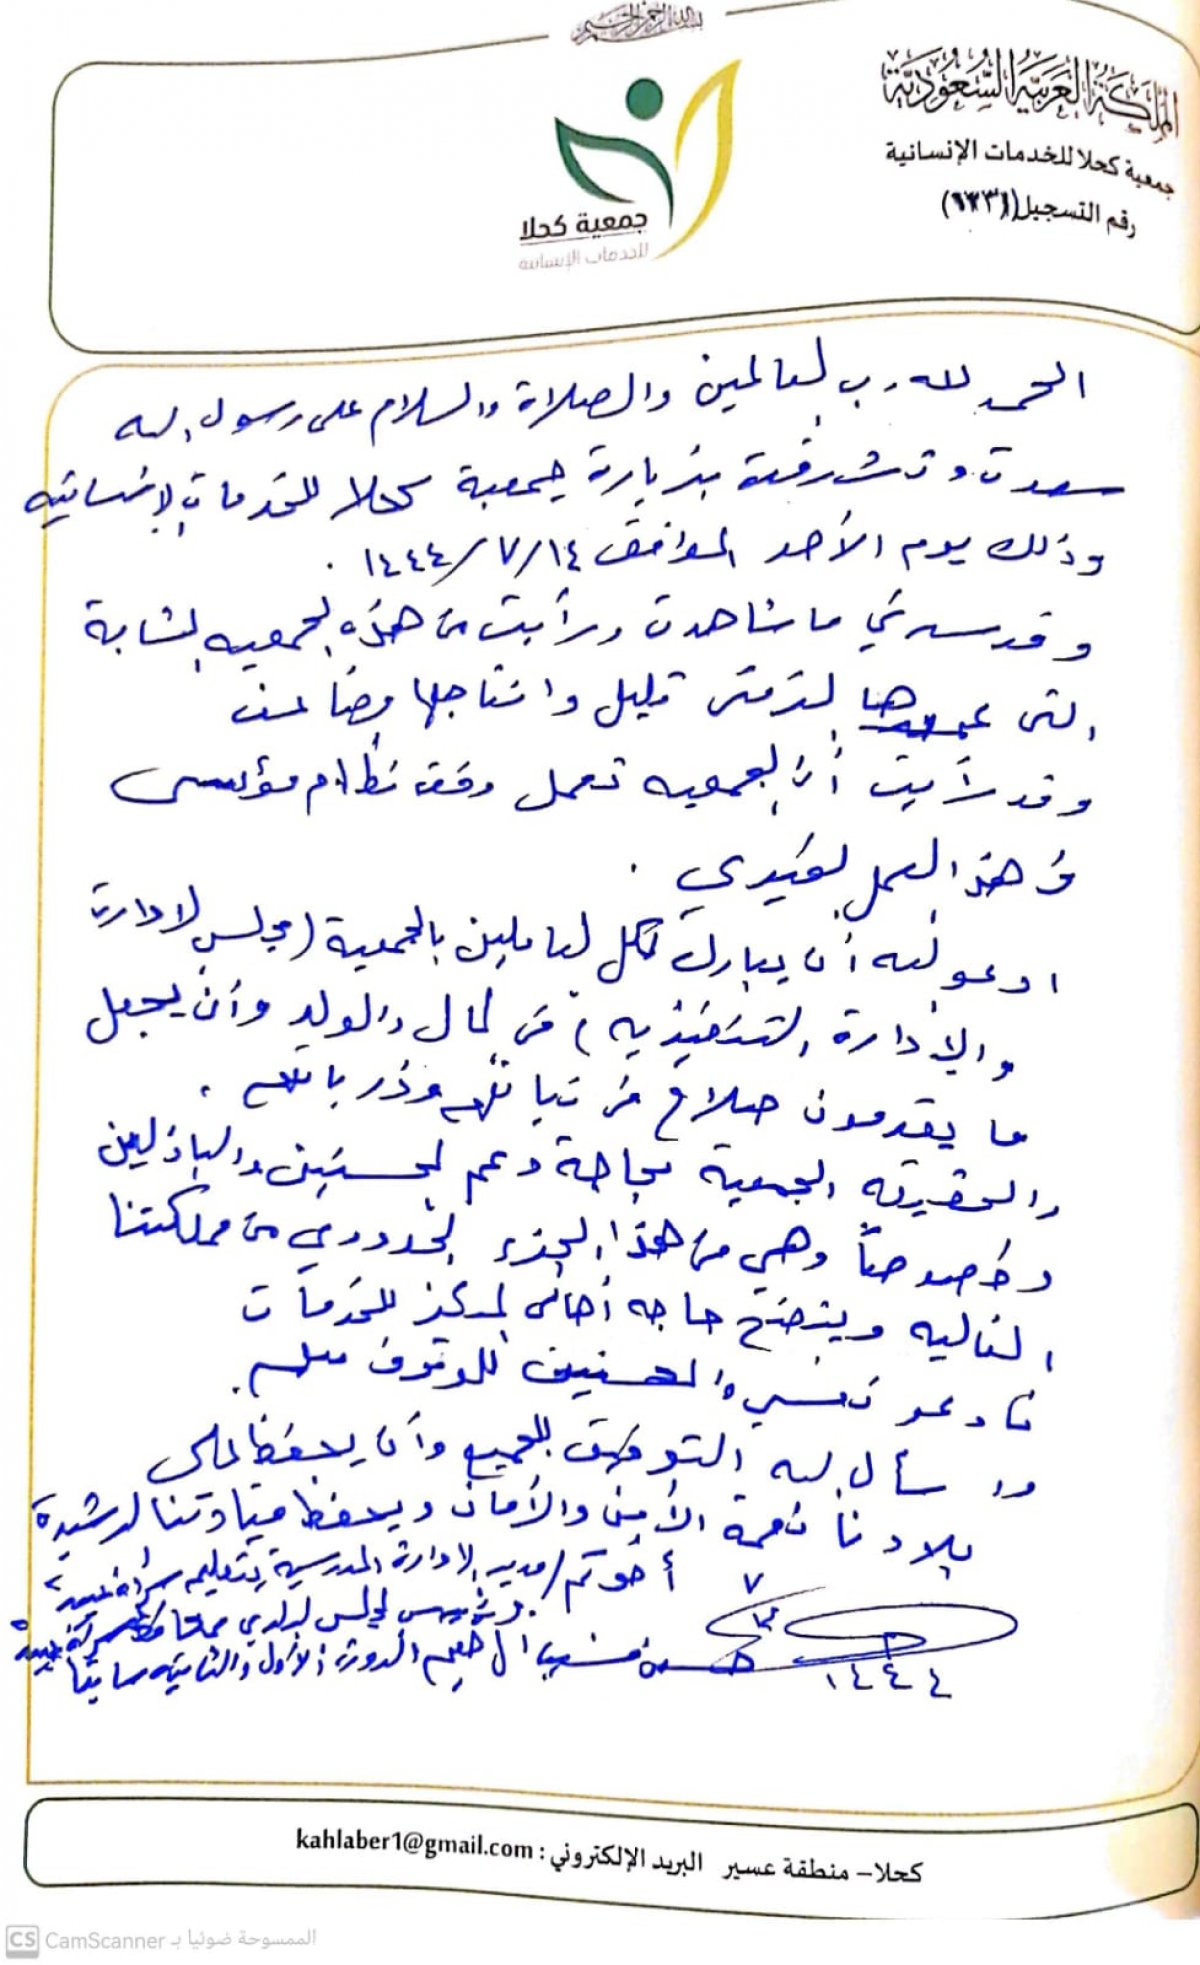 بسم الله الرحمن الرحيم
المملكة العربية السعودية
جمعية كحلا للخدمات الإنسانية
رقم التسجيل (١٣٣١)
جمعية كحلا
للخدمات الإنسانية
الحمد لله رب العالمين والصلاة والسلام على رسول الله
سعدت وتشرفت بزيارة جمعية كحلا للخدمات الإنسانيه
وذلك يوم الأحد الموافق ١٤٤٤/٧/١٤ .
وقد سرني ما شاهدت ورأيت من هذه الجمعيه الشابة
التى عمرها الزمنى قليل وانتاجها مضاعف
وقد رأيت أن الجمعيه تعمل وفق نظام مؤسسى
في هذا العمل الخيري .
ادعو الله أن يبارك لكل العاملين بالجمعية (مجلس الادارة
والإدارة التنفيذيه) في المال والولد وأن يجعل
ما يقدمون صلاح في نياتهم وذرياتهم .
والحقيقه الجمعية بحاجة دعم المحسنين والباذلين
وخصوصاً وهي من هذا الجزء الحدودي من مملكتنا
الغاليه ويتضح حاجه أهالى المركز للخدمات
فادعو نفسي والمحسنين للوقوف معهم .
واسأل الله التوفيق للجميع وأن يحفظ على
بلادنا نعمة الأمن والأمان ويحفظ قيادتنا الرشيدة
أخوكم / مدير الادارة المدرسية بتعليم سراة عبيدة
ورئيس المجلس البلدي بمحافظة سراة عبيدة
الدورة الأولى والثانيه سابقا
٧
١٤٤٤
كحلا – منطقة عسير البريد الإلكتروني : kahlaber1@gmail.com
CS CamScanner الممسوحة ضوئيا بـ